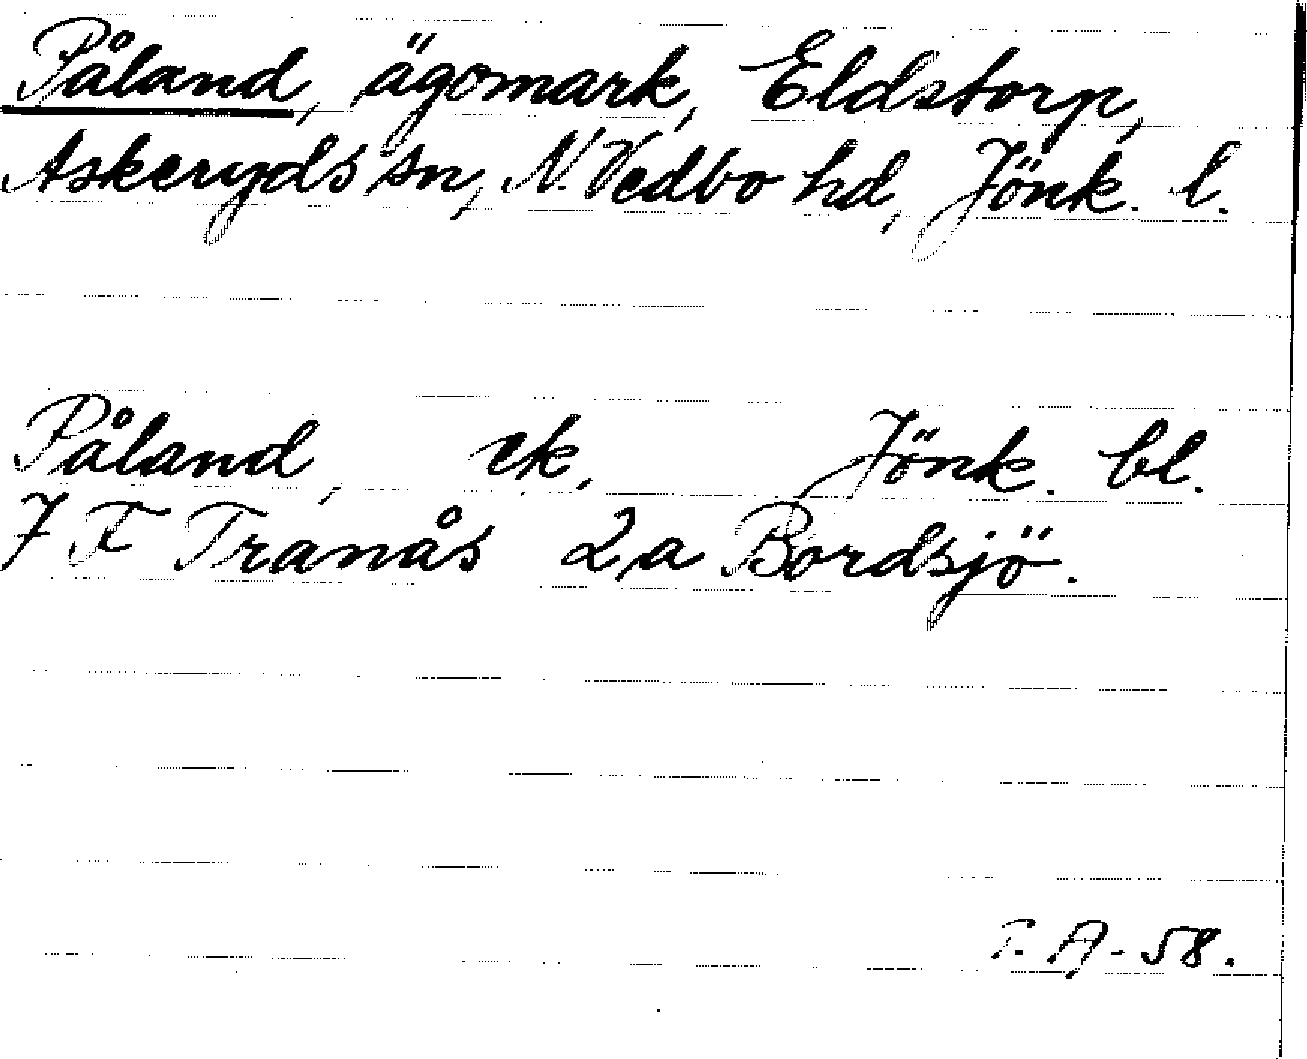 Påland, ägomark, Eldstorp,
Askeryds sn, N. Vedbo hd, Jönk. l.
Påland, ek, Jönk. bl.
7 F Tranås 2 a Bordsjö.
T. A-58.